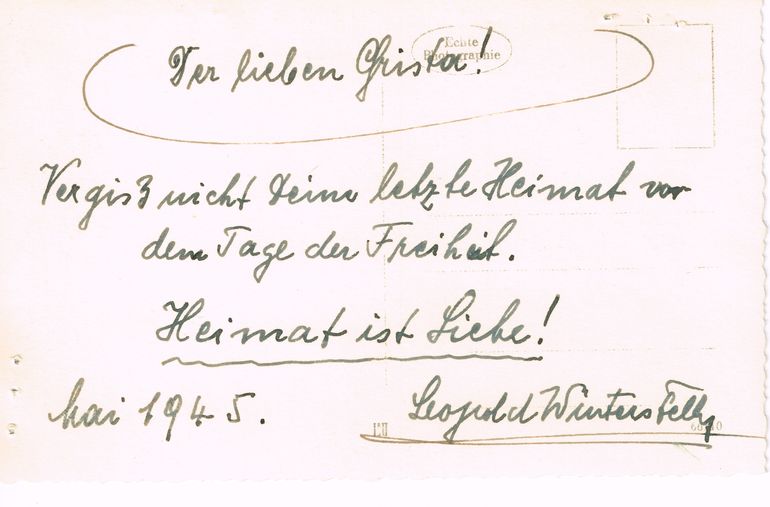 Echte
Photographie
Der lieben Christa!
Vergiß nicht Deine letzte Heimat vor
dem Tage der Freiheit.
Heimat ist Liebe!
Mai 1945.
Leopold